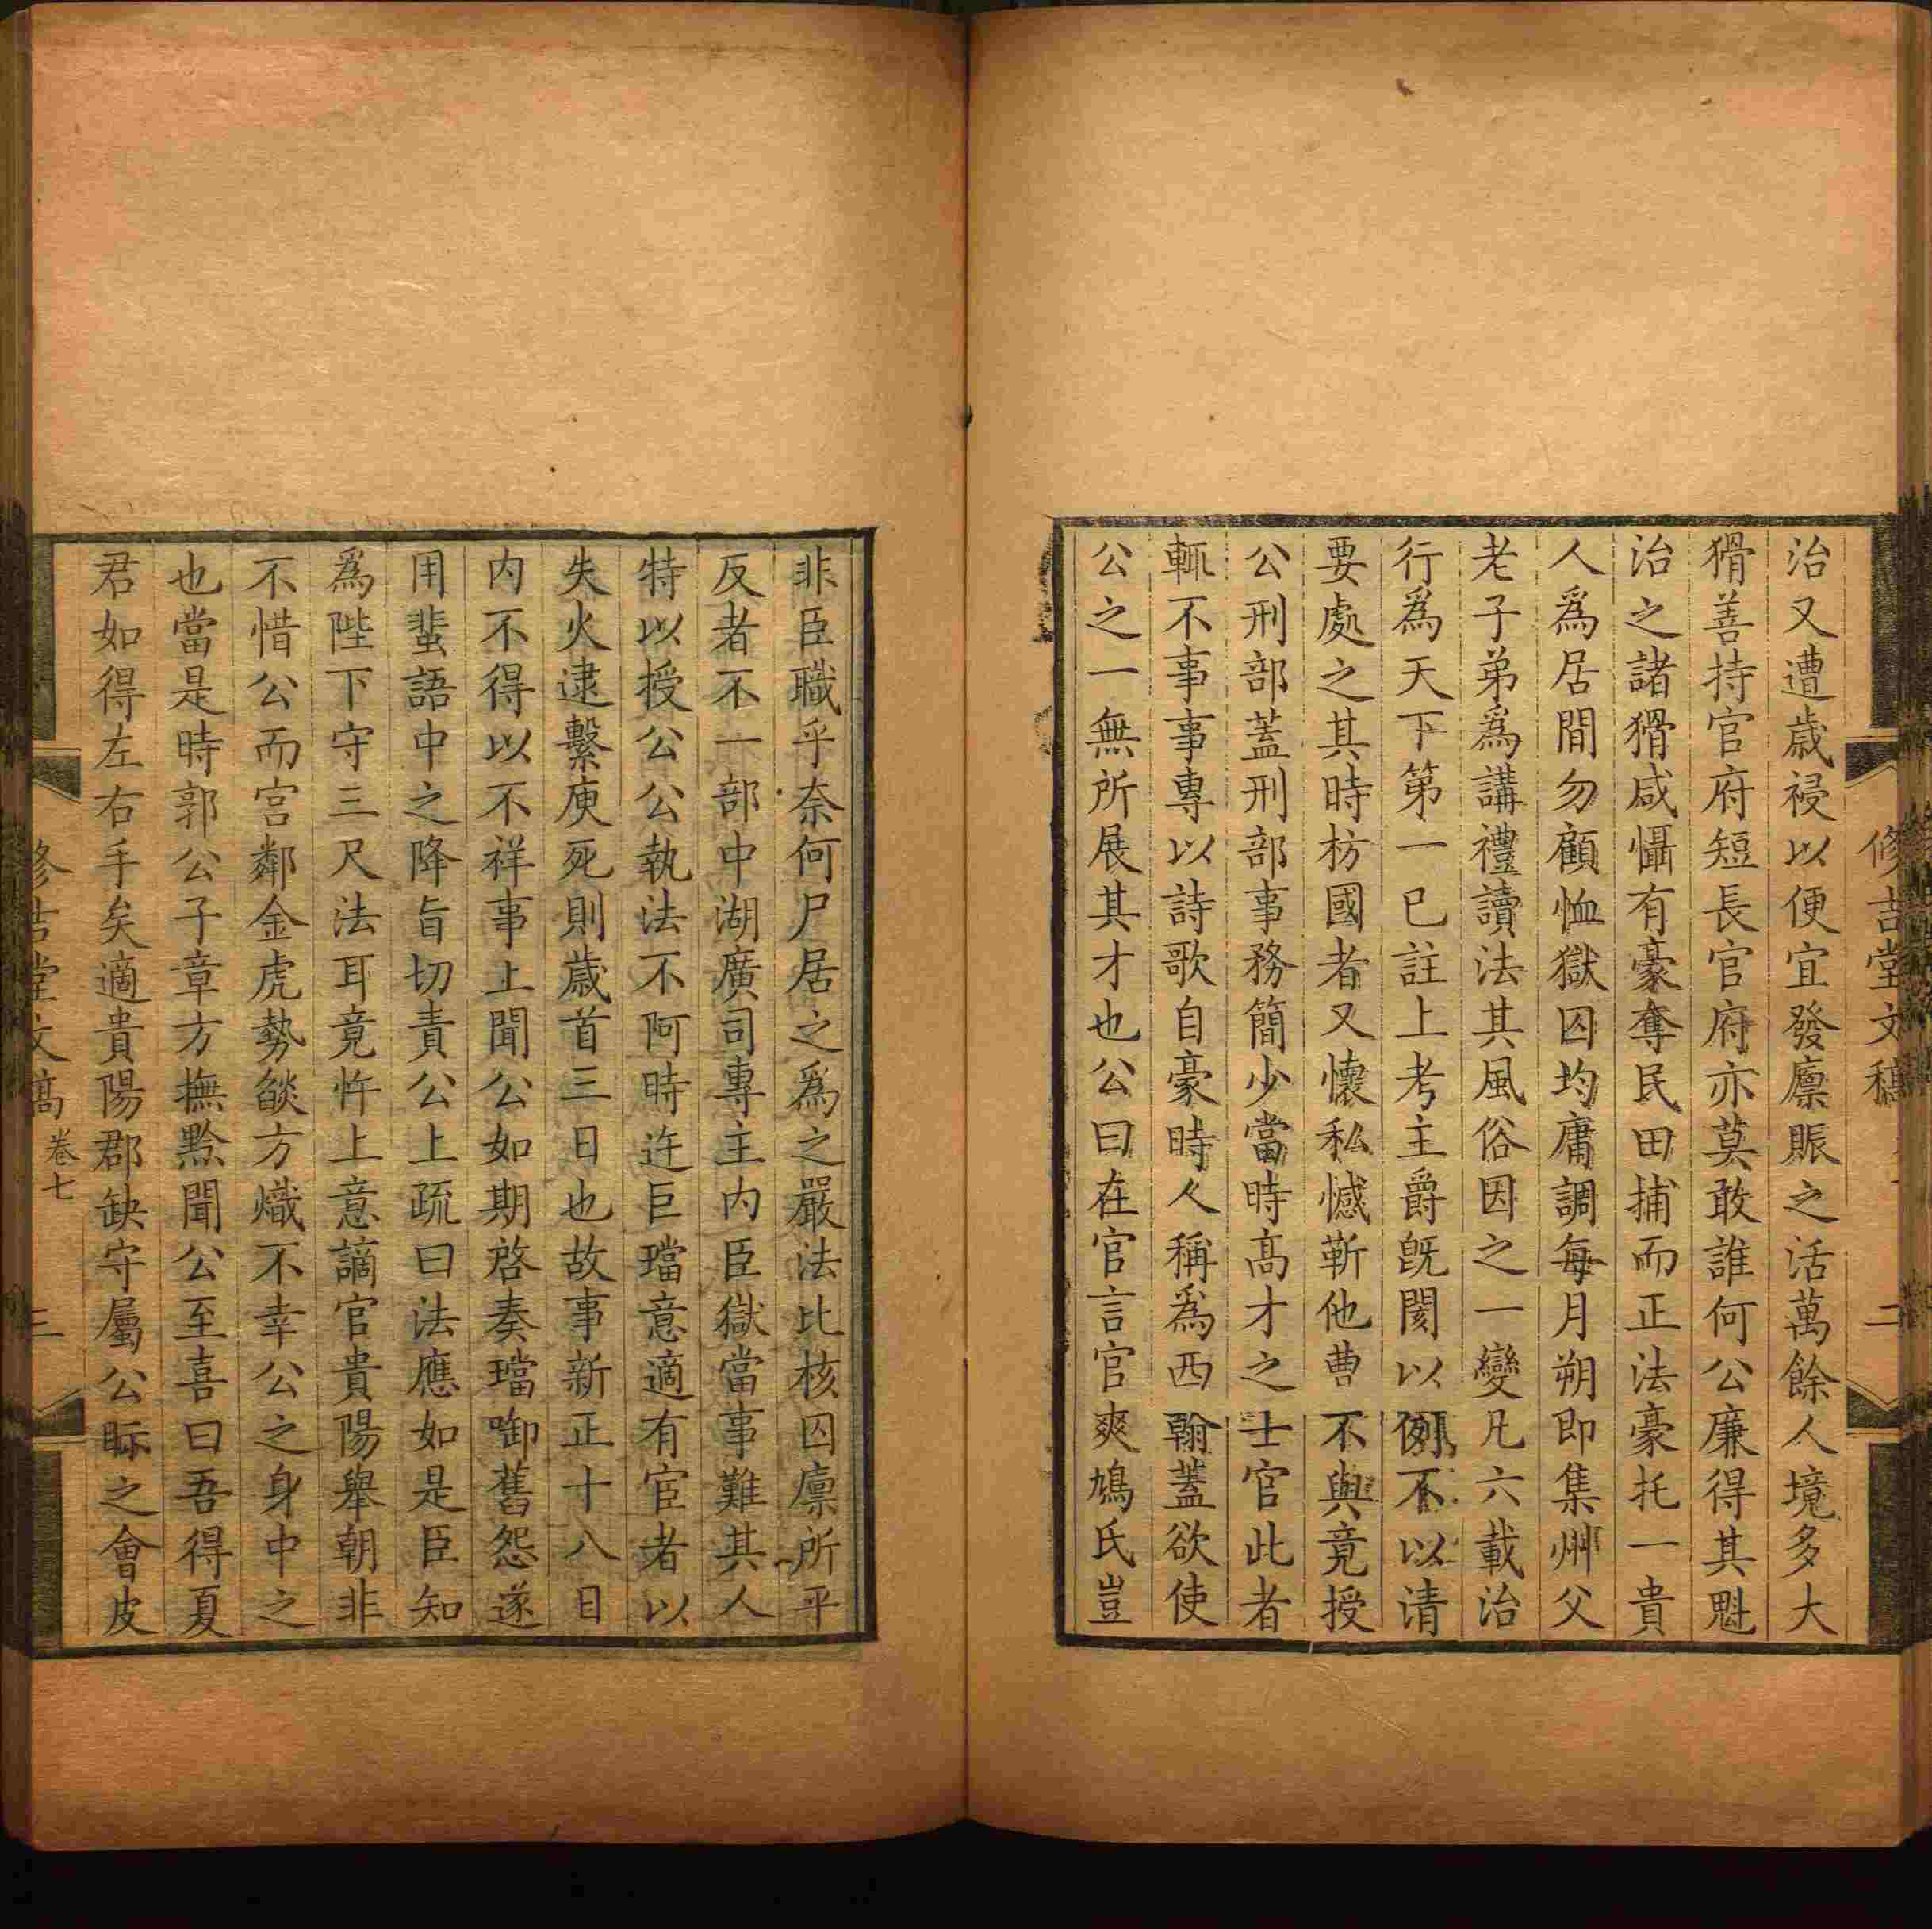 修吉堂文稿
二
治又遭歲祲以便宜發廩賑之活萬餘人境多大
猾善持官府短長官府亦莫敢誰何公廉得其魁
治之諸猾咸懾有豪奪民田捕而正法豪托一貴
人爲居間勿顧恤獄囚均庸調每月朔即集州父
老子弟爲講禮讀法其風俗因之一變凡六載治
行爲天下第一已註上考主爵旣閡以例不以清
要處之其時枋國者又懷私憾靳他曹不與竟授
公刑部蓋刑部事務簡少當時高才之士官此者
輒不事事專以詩歌自豪時人稱爲西翰蓋欲使
公之一無所展其才也公曰在官言官爽鳩氏豈
非臣職乎奈何尸居之爲之嚴法比核囚廩所平
反者不一部中湖廣司專主内臣獄當事難其人
特以授公公執法不阿時迕巨璫意適有宦者以
失火逮繫庾死則歲首三日也故事新正十八日
内不得以不祥事上聞公如期啓奏璫啣舊怨遂
用蜚語中之降旨切責公上疏曰法應如是臣知
爲陛下守三尺法耳竟忤上意謫官貴陽舉朝非
不惜公而宮鄰金虎勢燄方熾不幸公之身中之
也當是時郭公子章方撫黔聞公至喜曰吾得夏
君如得左右手矣適貴陽郡缺守屬公眎之會皮
修吉堂文稿 卷七
三